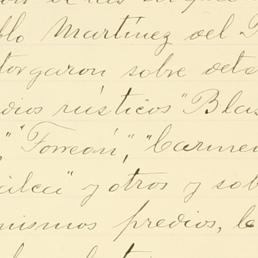 blo Martínez del P
torgaron sobre dete
dios rústicos "Blas
"Torreón", "Carmen
ilca" y otros y sob
mismos predios, le